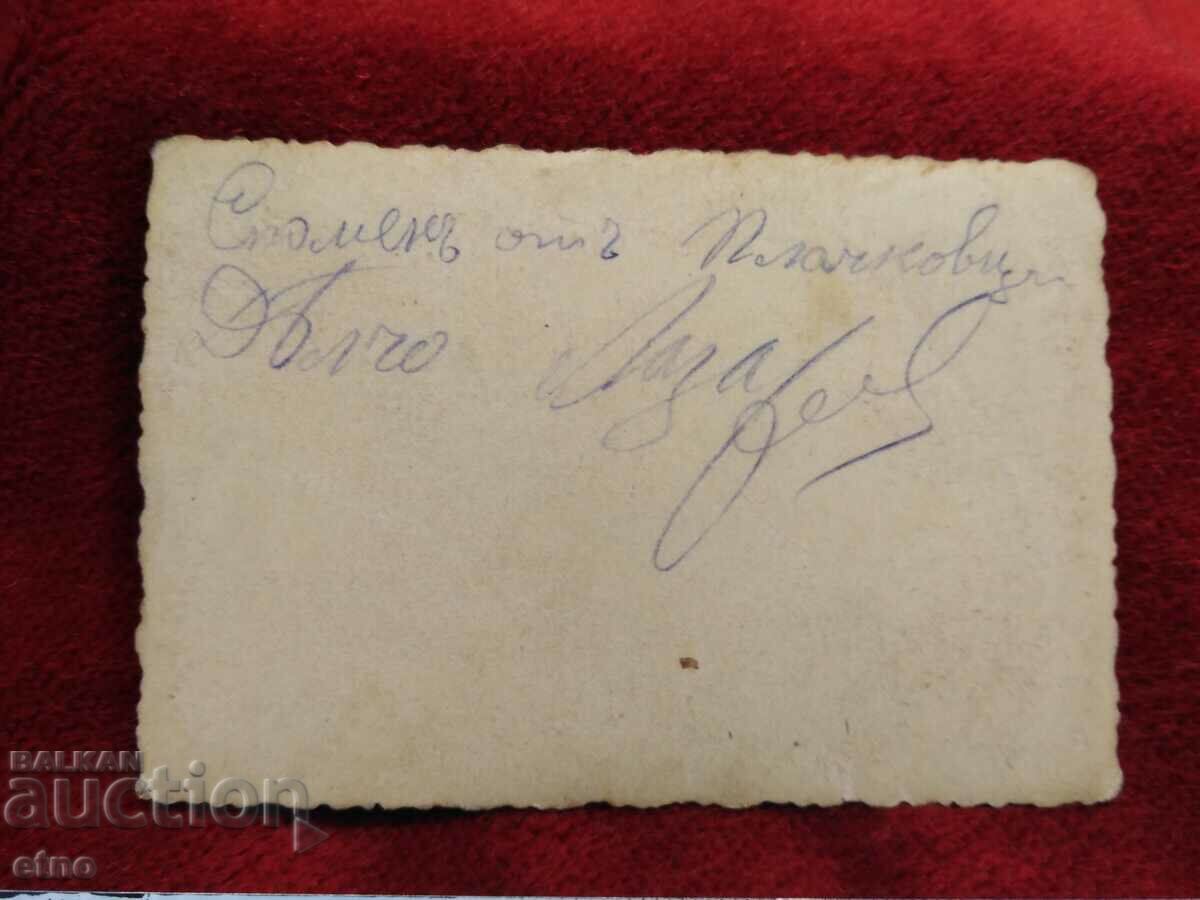 Споменъ отъ Плачковци
Дѣлчо Лазаревъ
BALKAN
auction
etno